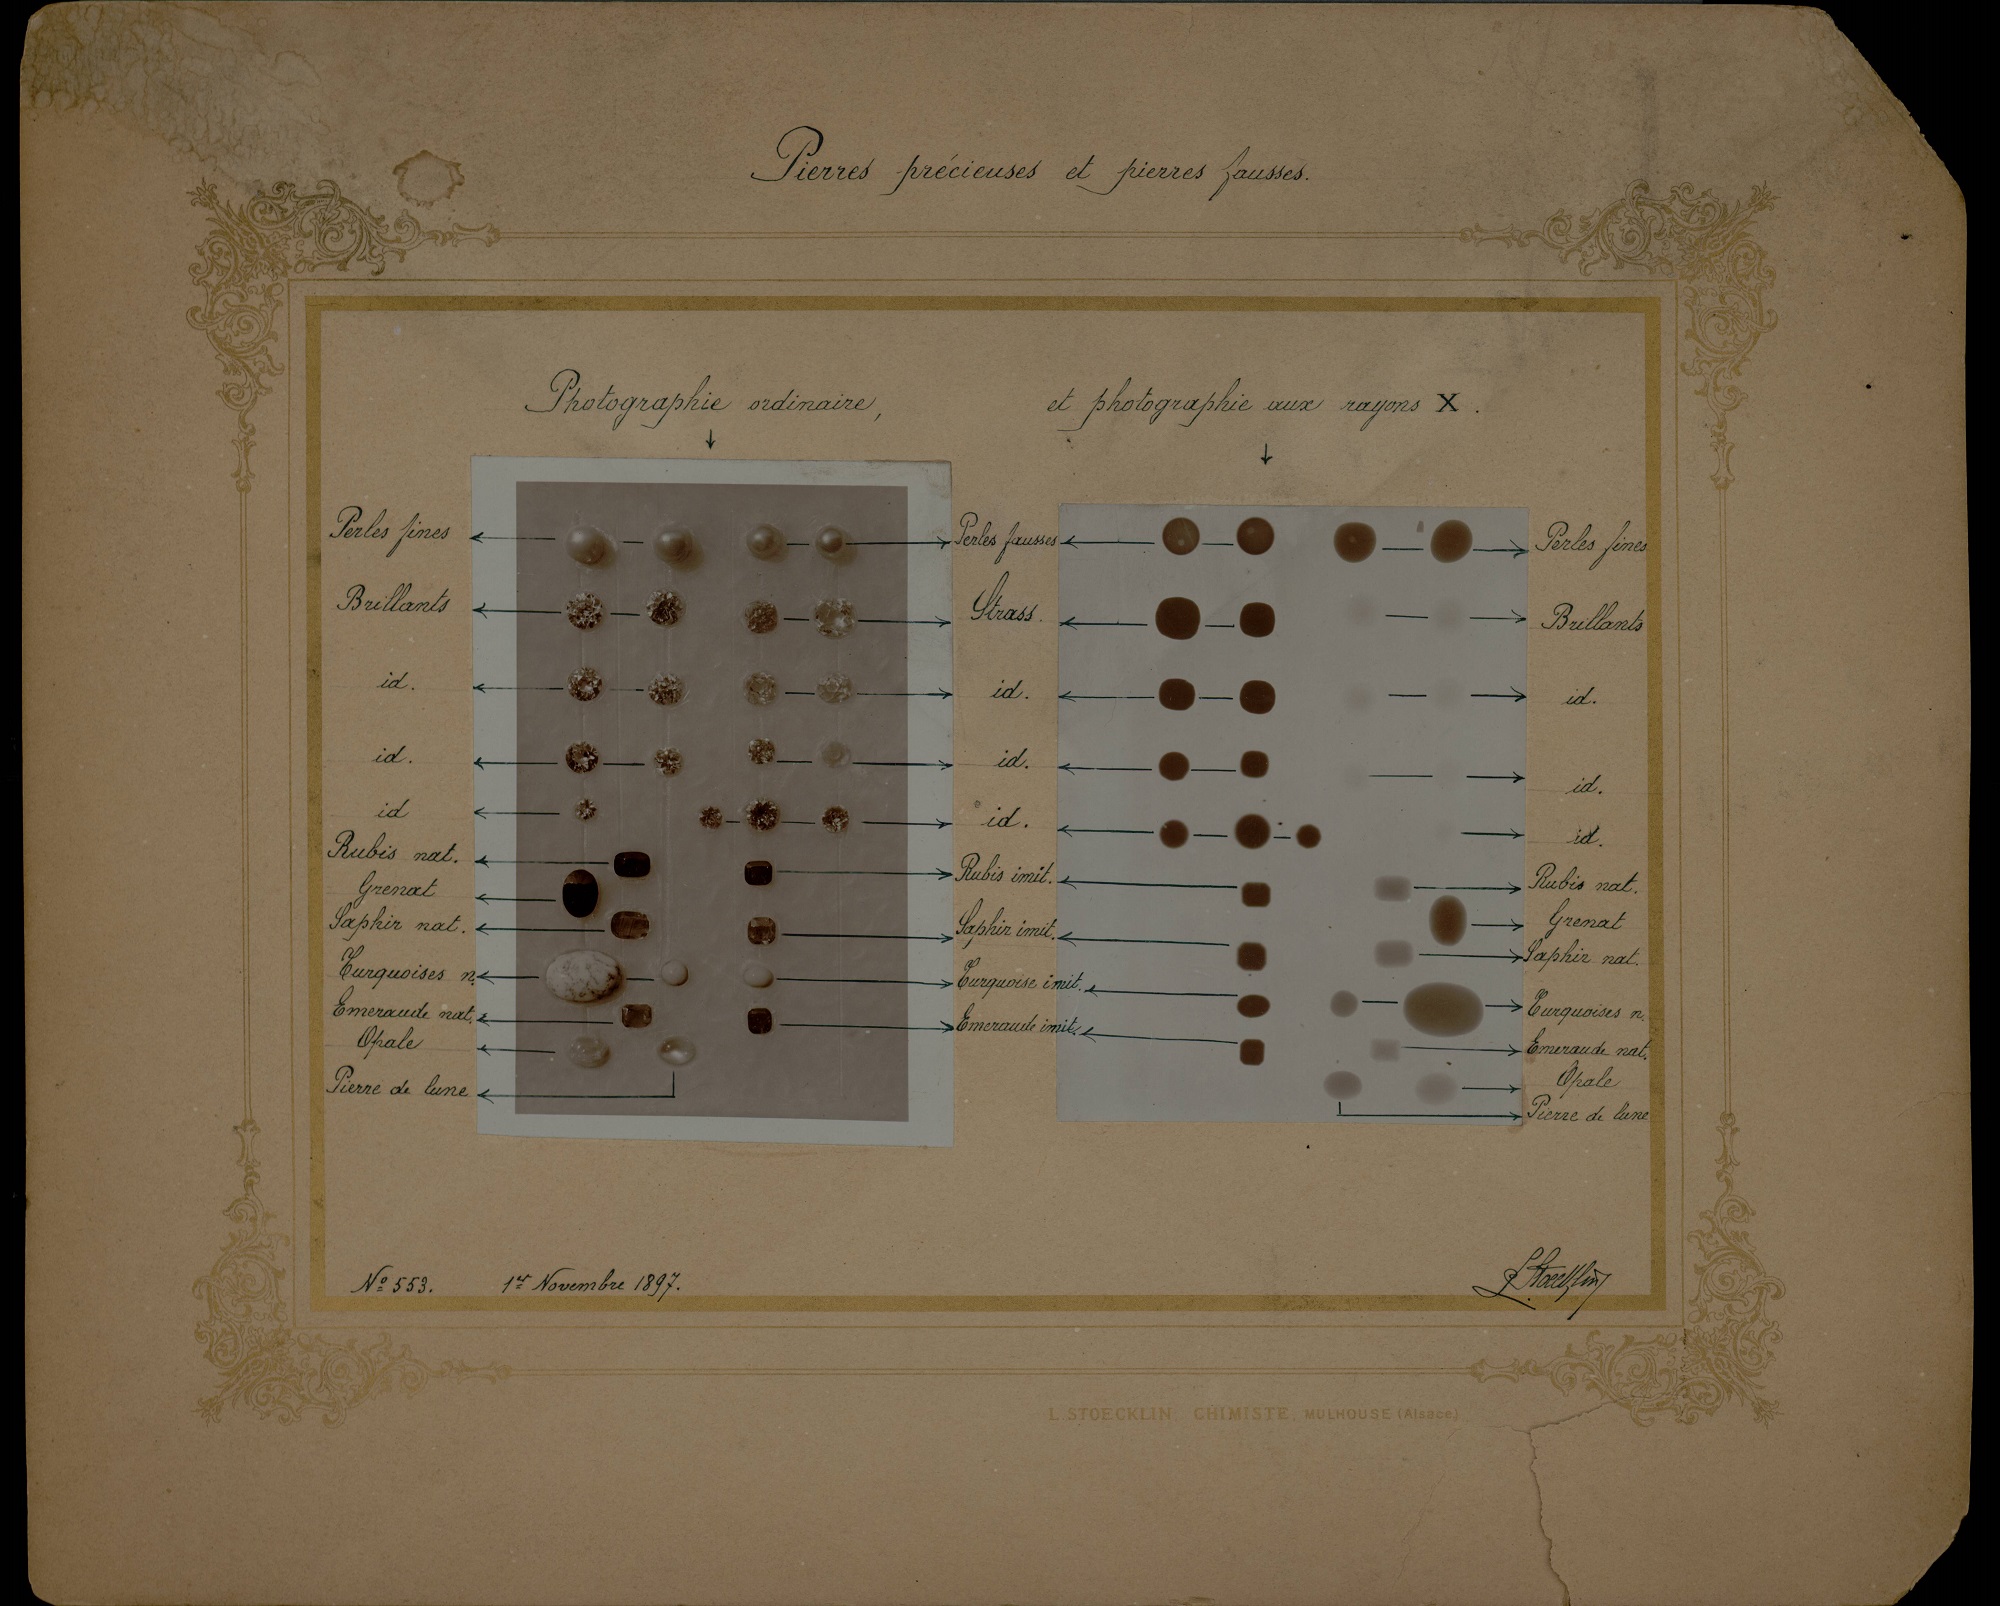 Pierres précieuses et pierres fausses.
Photographie ordinaire,
et photographie aux rayons X.
Perles fines
Brillants
id.
id.
id
Rubis nat.
Grenat
Saphir nat.
Turquoises n.
Emeraude nat.
Opale
Pierre de lune
Perles fausses
Strass.
id.
id.
id.
Rubis imit.
Saphir imit.
Turquoise imit.
Emeraude imit.
Perles fines
Brillants
id.
id.
id.
Rubis nat.
Grenat
Saphir nat.
Turquoises n.
Emeraude nat.
Opale
Pierre de lune
Nº 553. 1er Novembre 1897.
L Stoecklin
L. STOECKLIN, CHIMISTE, MULHOUSE (Alsace)